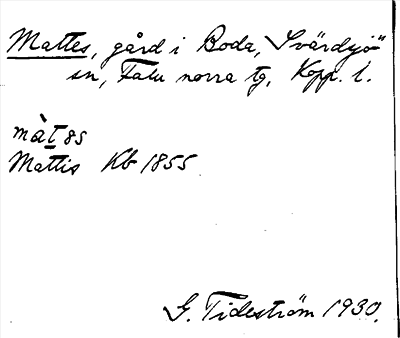 Mattes, gård i Boda, Svärdsjö
sn, Falu norra tg, Kopp. l.
màt 85
Mattis Kb 1855
G. Tideström 1930.